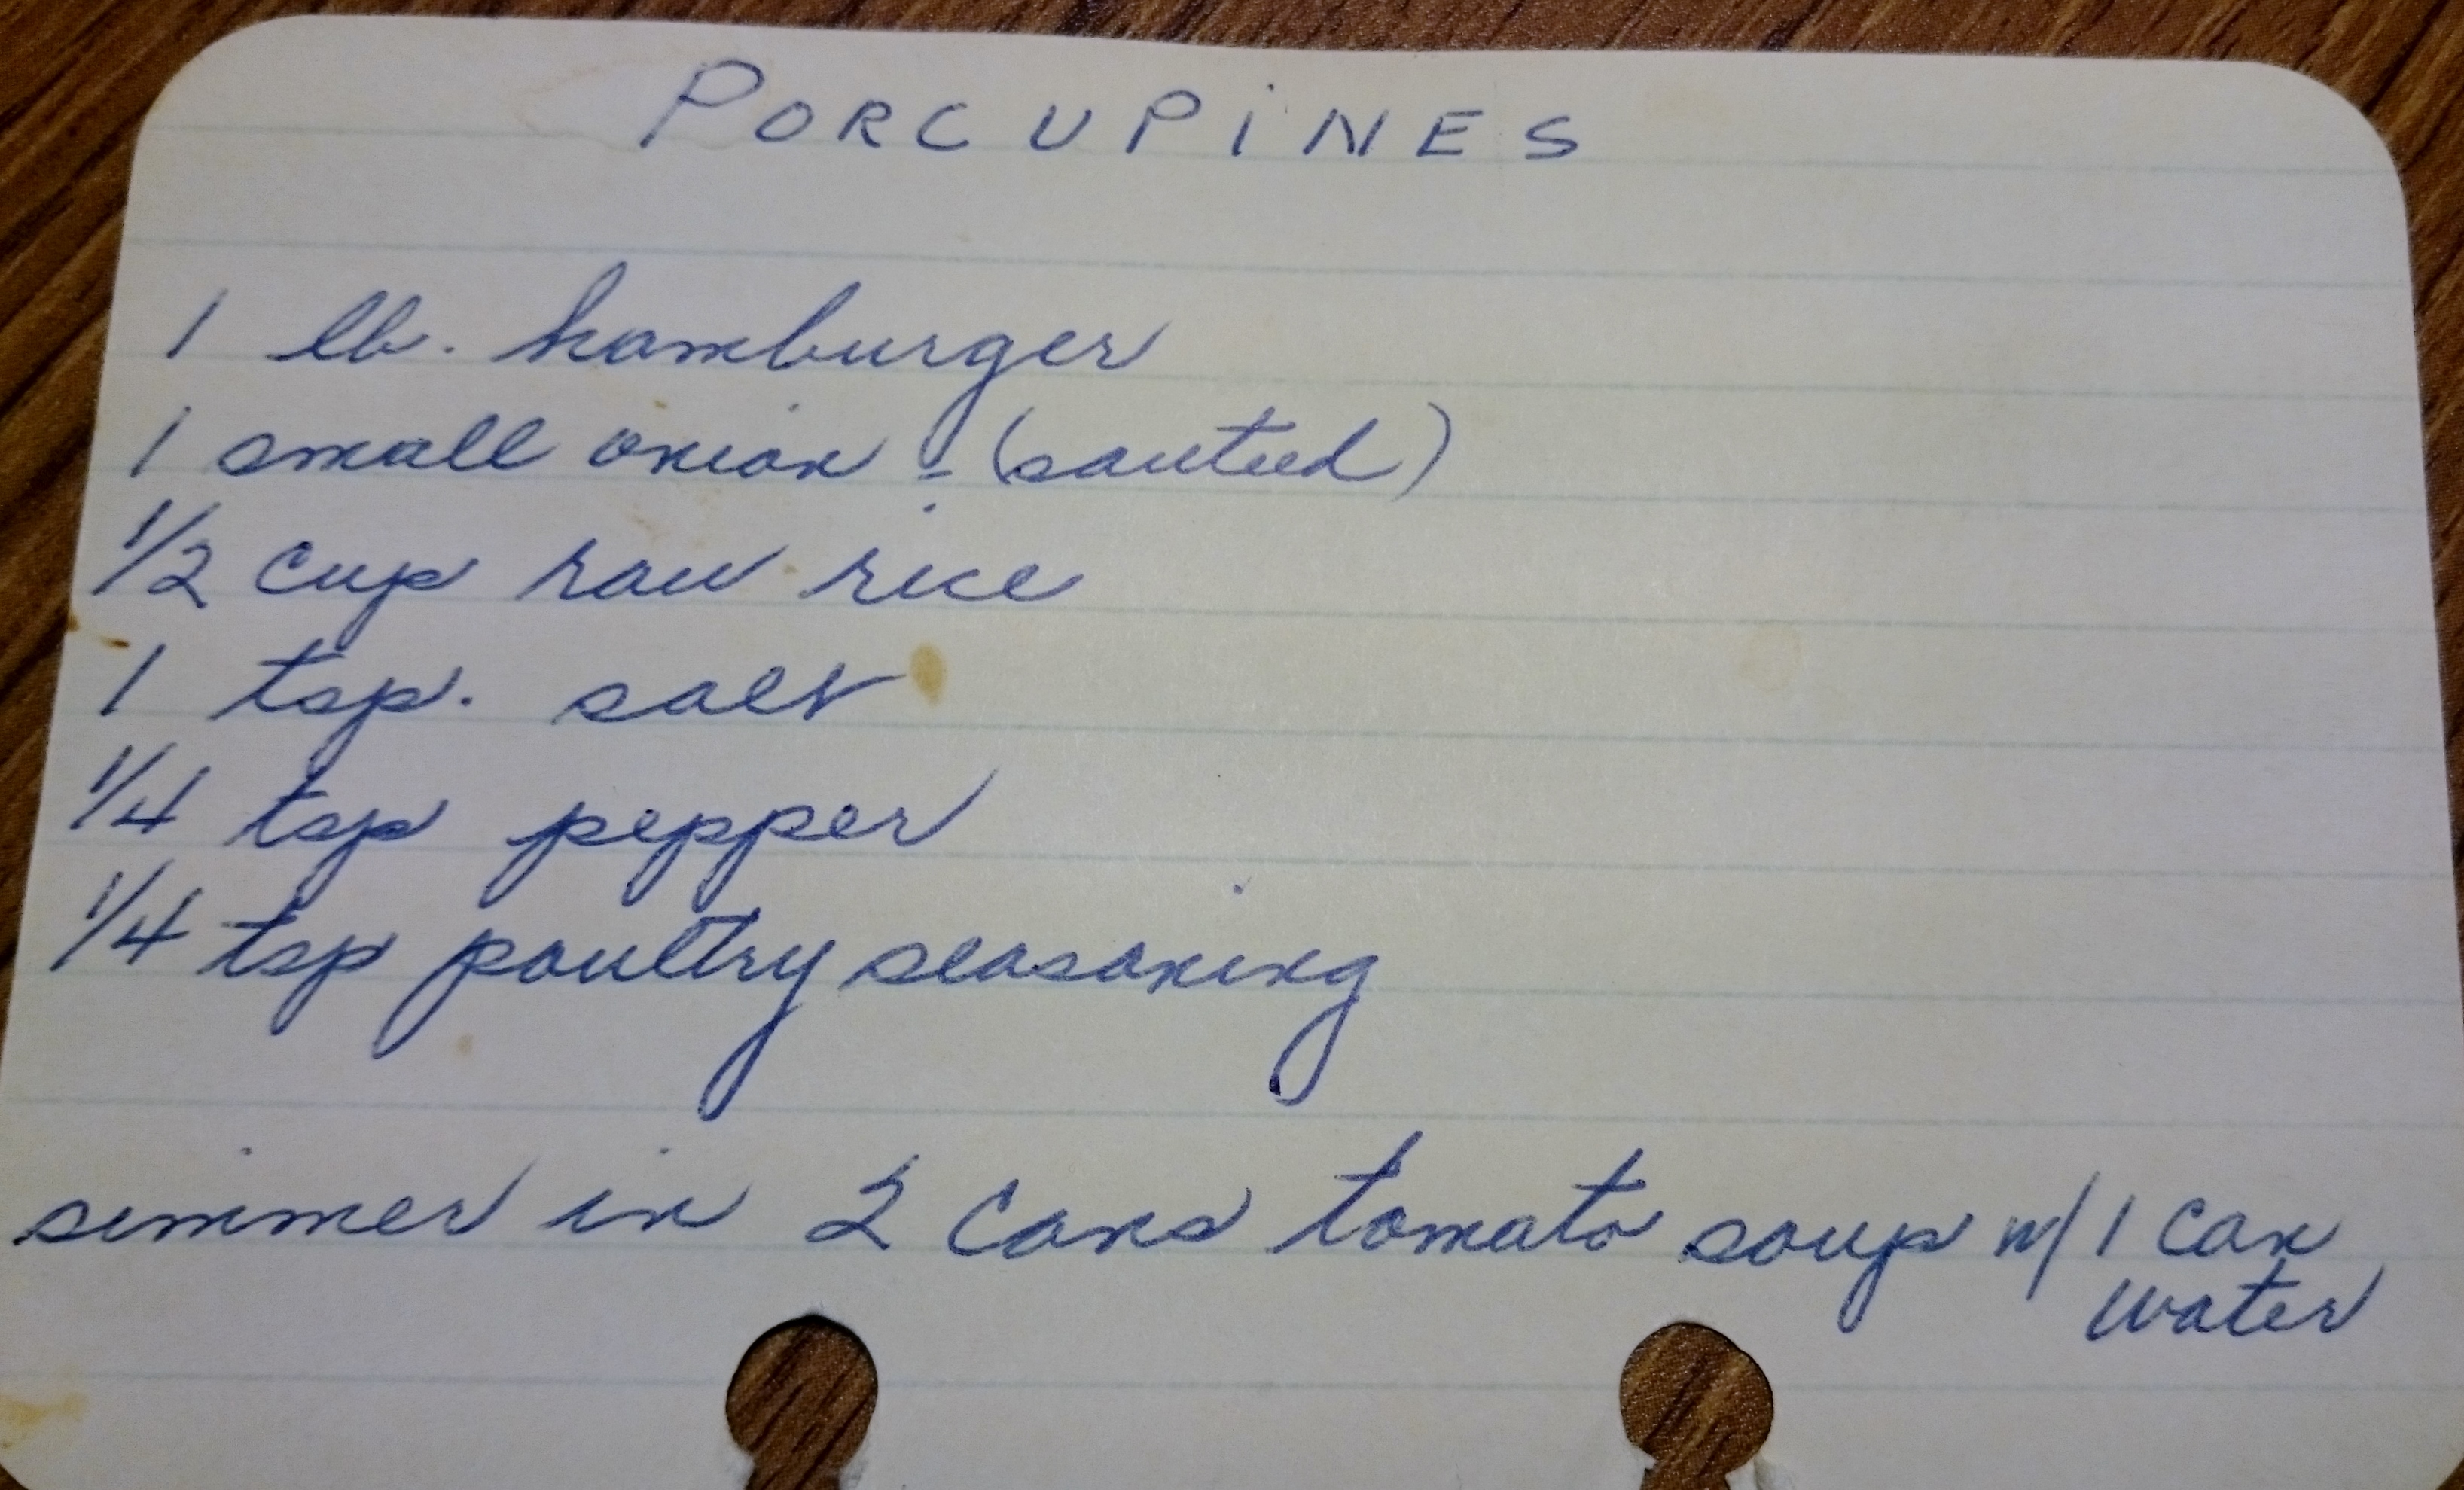 PORCUPiNES
1 lb. hamburger
1 small onion - (sauteed)
1/2 cup raw rice
1 tsp. salt
1/4 tsp pepper
1/4 tsp poultry seasoning
simmer in 2 cans tomato soup w/ 1 can
water